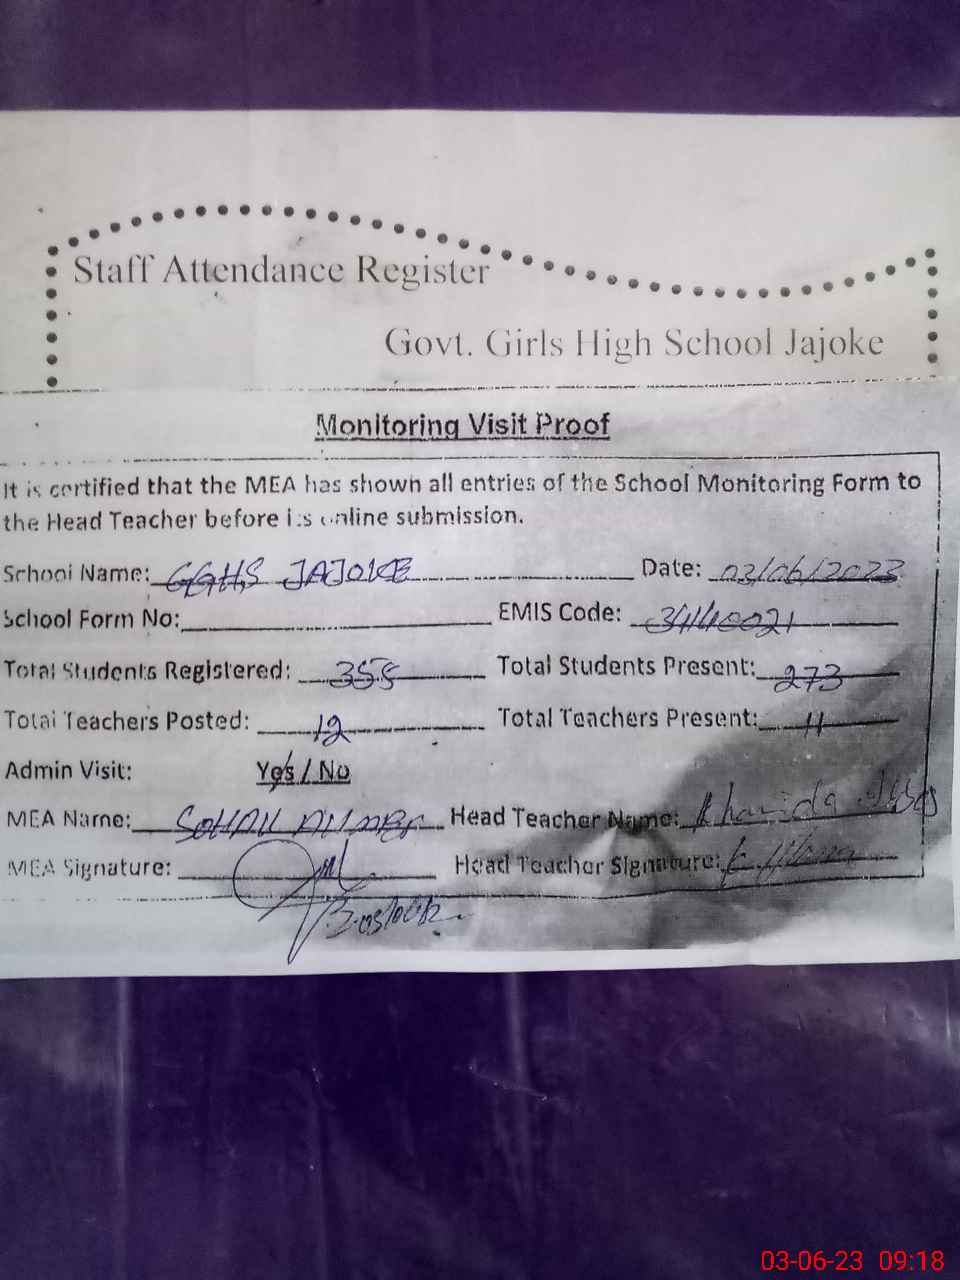 Staff Attendance Register
Govt. Girls High School Jajoke
Monitoring Visit Proof
It is certified that the MEA has shown all entries of the School Monitoring Form to
the Head Teacher before its online submission.
School Name: GGHS JAJOKE Date: 03/06/2023
School Form No: EMIS Code: 34140021
Total Students Registered: 355 Total Students Present: 273
Total Teachers Posted: 12 Total Teachers Present: 11
Admin Visit: Yes / No
MEA Name: Head Teacher Name:
MEA Signature: Head Teacher Signature:
03-06-23 09:18